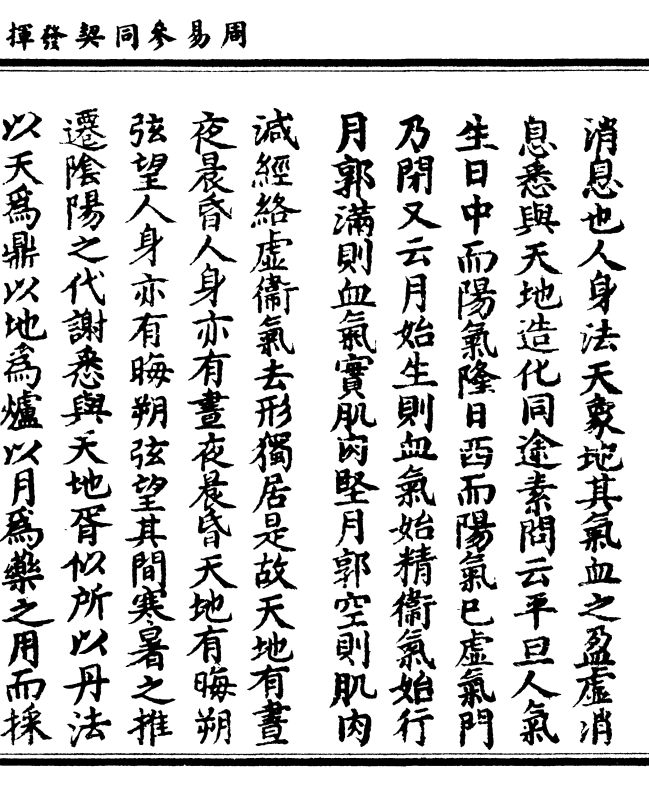 周易參同契發揮
消息也人身法天象地其氣血之盈虛消
息悉與天地造化同途素問云平旦人氣
生日中而陽氣隆日西而陽氣已虛氣門
乃閉又云月始生則血氣始精衞氣始行
月郭滿則血氣實肌肉堅月郭空則肌肉
減經絡虛衞氣去形獨居是故天地有晝
夜晨昏人身亦有晝夜晨昏天地有晦朔
弦望人身亦有晦朔弦望其間寒暑之推
遷陰陽之代謝悉與天地胥似所以丹法
以天為鼎以地為爐以月為藥之用而採